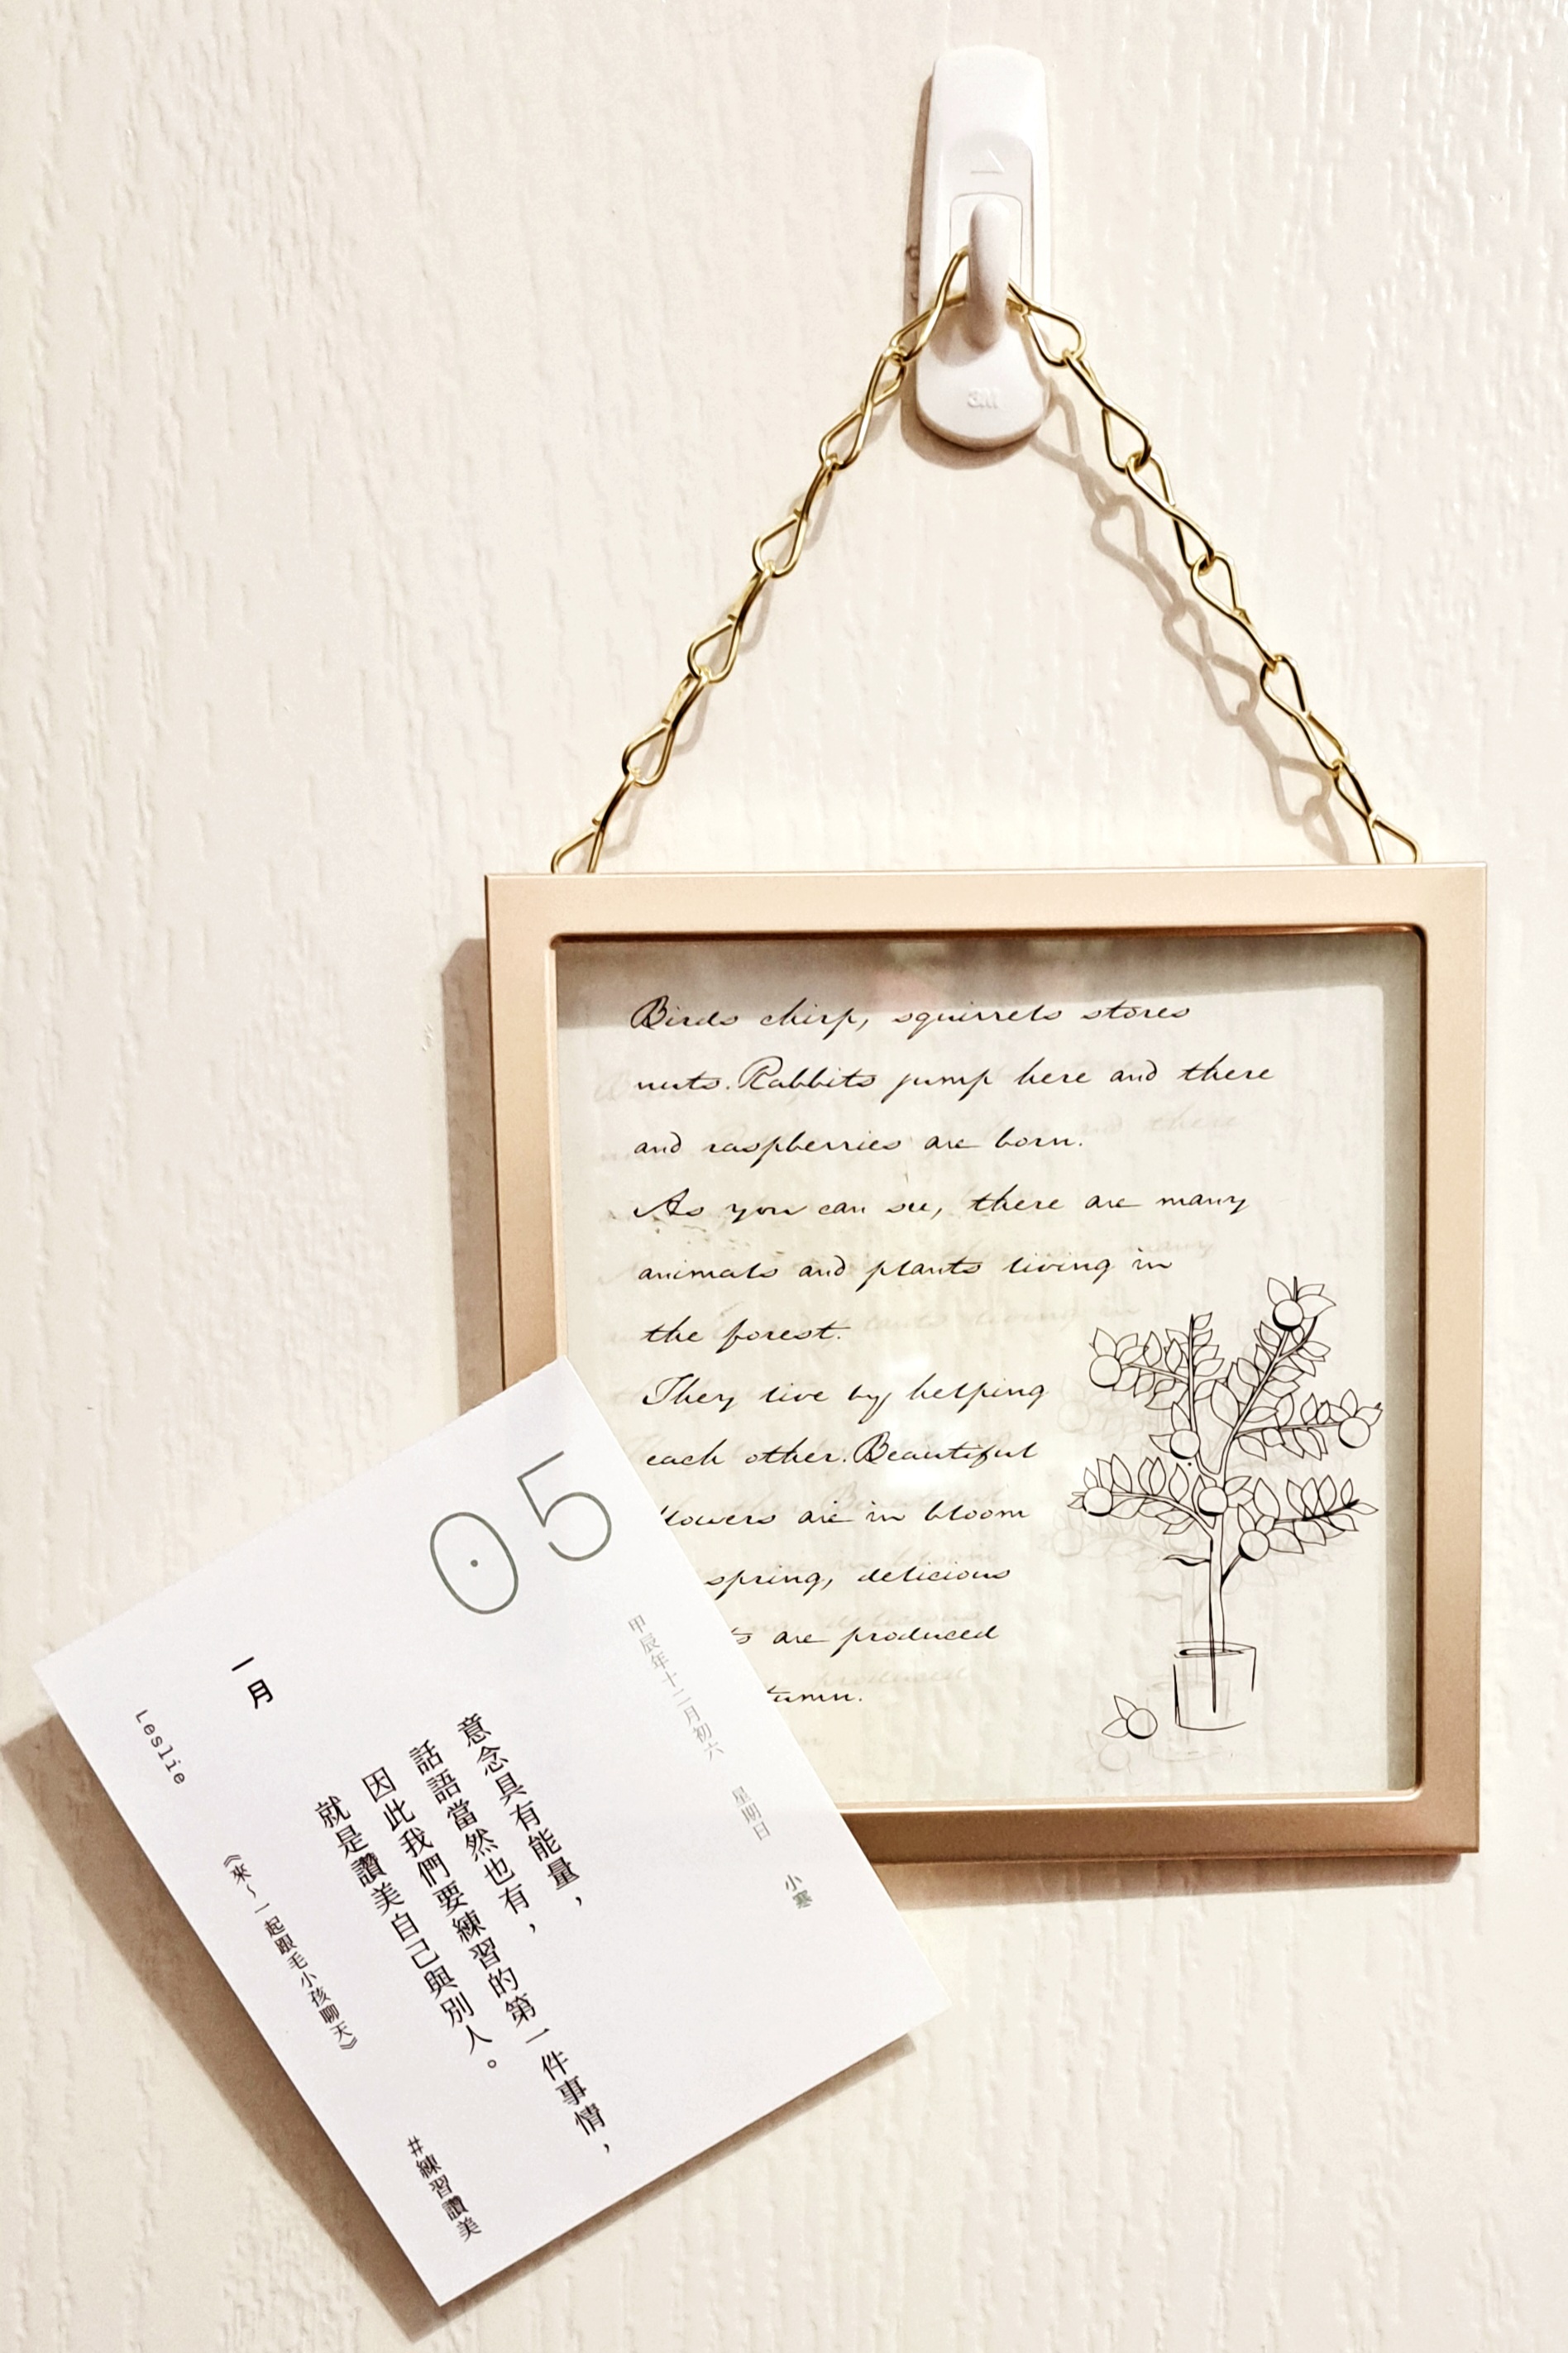 3M
Birds chirp, squirrels stores
nuts. Rabbits jump here and there
and raspberries are born.
As you can see, there are many
animals and plants living in
the forest.
They live by helping
each other. Beautiful
lowers are in bloom
spring, delicious
ts are produced
tumn.
05
甲辰年十二月初六 星期日 小寒
一月
意念具有能量，
話語當然也有，
因此我們要練習的第一件事情，
就是讚美自己與別人。
Leslie
《來～一起跟毛小孩聊天》
#練習讚美